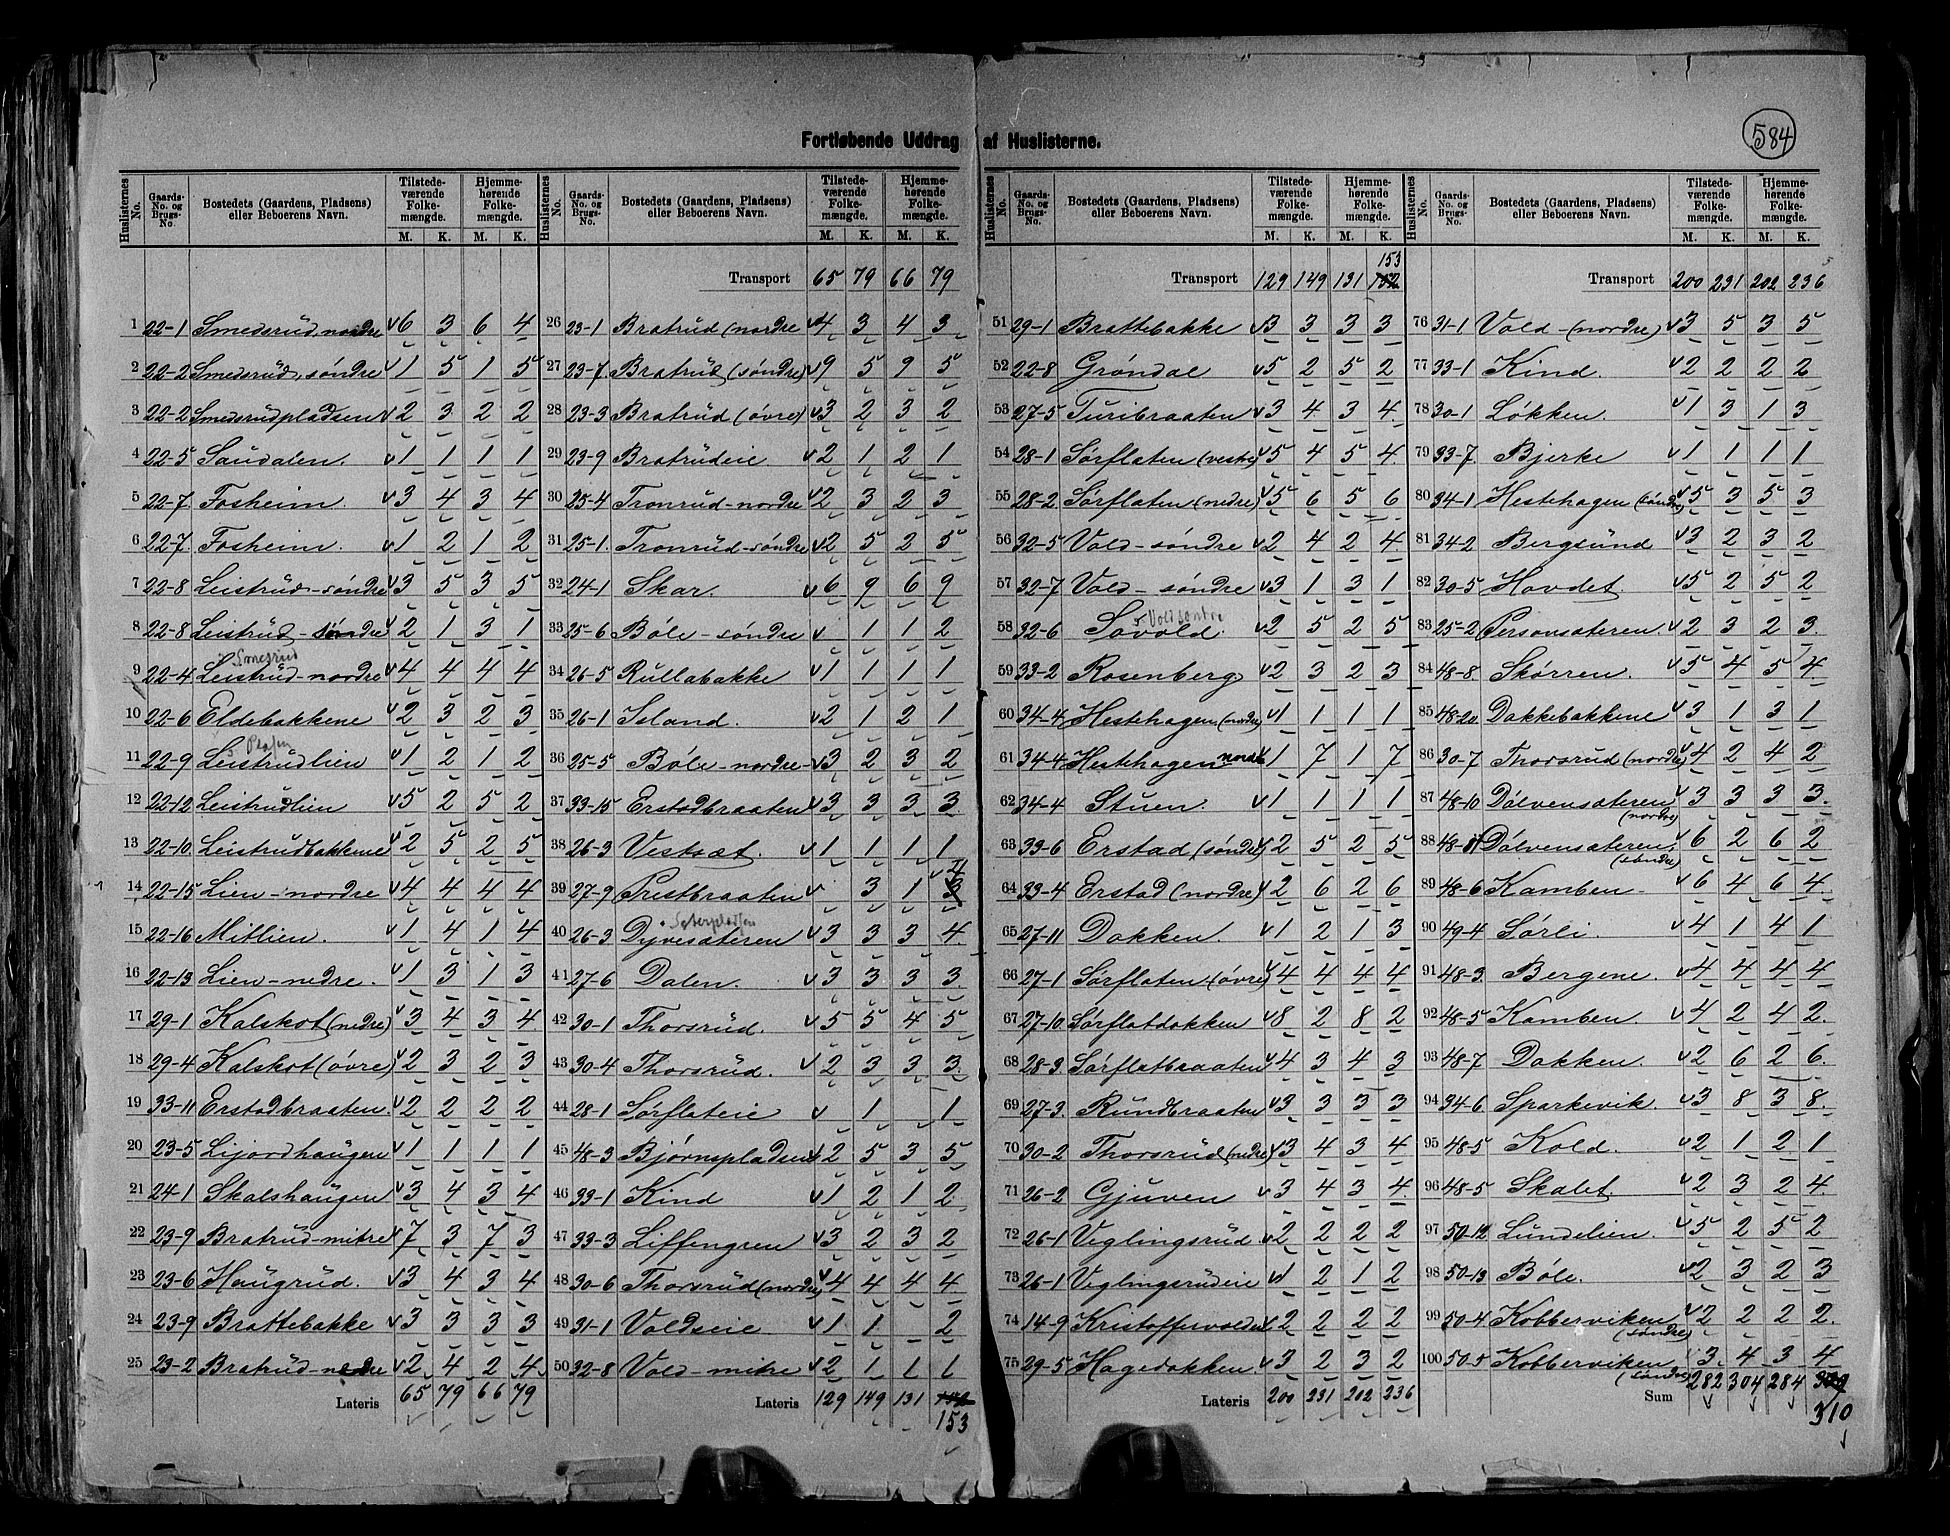 584
Fortløbende Uddrag af Huslisterne.
Huslisternes No. Gaards-No. og Brugs-No. Bostedets (Gaardens, Pladsens) eller Beboerens Navn. Tilstedeværende Folkemængde. M. K. Hjemmehørende Folkemængde. M. K.
1 22-1 Smedsrud, nordre 6 3 6 4
2 22-2 Smedsrud, søndre 1 5 1 5
3 22-2 Smedsrudpladsen 2 3 2 2
4 22-5 Saudalen. 1 1 1 1
5 22-7 Fosheim 3 4 3 4
6 22-7 Fosheim. 1 2 1 2
7 22-8 Leistrud-søndre 3 5 3 5
8 22-8 Leistrud-søndre 2 1 3 1
Smesrud
9 22-4 Leistrud-nordre 4 4 4 4
10 22-6 Eldebakkene 2 3 2 3
11 22-9 Leistrudlien 1 2 1 2
12 22-12 Leistrudlien 5 2 5 2
13 22-10 Leistrudbakkene 2 5 2 5
14 22-15 Lien-nordre 4 4 4 4
15 22-16 Mitlien. 1 4 1 4
16 22-13 Lien-nedre. 1 3 1 3
17 29-1 Kalskot (nedre) 3 4 3 4
18 29-4 Kalskot (øvre) 2 3 2 3
19 33-11 Erstadbraaten. 2 2 2 2
20 23-5 Lijordhaugen 1 1 1 1
21 24-1 Skalshaugen 3 4 3 4
22 23-9 Bratrud-mitre 7 3 7 3
23 23-6 Haugrud. 3 4 3 4
24 23-9 Brattebakke 3 3 3 3
25 23-2 Bratrud-nedre 2 4 2 4
Lateris 65 79 66 79
Huslisternes No. Gaards-No. og Brugs-No. Bostedets (Gaardens, Pladsens) eller Beboerens Navn. Tilstedeværende Folkemængde. M. K. Hjemmehørende Folkemængde. M. K.
Transport 65 79 66 79
26 23-1 Bratrud (nordre 4 3 4 3
27 23-7. Bratrud (søndre) 9 5 9 5
28 23-3 Bratrud (øvre) 3 2 3 2
29 23-9 Bratrudeie. 2 1 2 1
30 25-4 Tronrud-nordre 2 3 2 3
31 25-1. Tronrud-søndre 2 5 2 5
32 24-1 Skar. 6 9 6 9
33 25-6 Bøle-søndre 1 1 2
34 26-5 Rullabakke 1 1 1 1
35 26-1 Island. 2 1 2 1
36 25-5 Bøle-nordre 3 2 3 2
37 33-15 Erstadbraaten 3 3 3 3
38 26-3 Vestsæt. 1 1 1 1
39 27-9 Prestbraaten 3 1 4
Seterpladsen
40 26-3 Dyvesæteren 3 3 3 4
41 27-6 Dalen. 3 3 3 3
42 30-1 Thorsrud. 5 5 4 5
43 30-4 Thorsrud. 2 3 3 3
44 28-1 Sørflateie 1 1
45 48-3 Bjørnspladsen 2 5 3 5
46 33-1 Kind 1 2 1 2
47 33-3 Liffengren 3 2 3 2
48 30-6 Thorsrud (nordre) 4 4 4 4
49 31-1 Voldseie 1 1 2
50 32-8 Vold-mitre 2 1 1 1
Lateris 129 149 131 152
153
Huslisternes No. Gaards-No. og Brugs-No. Bostedets (Gaardens, Pladsens) eller Beboerens Navn. Tilstedeværende Folkemængde. M. K. Hjemmehørende Folkemængde. M. K.
153
Transport 129 149 131 152
51 29-1 Brattebakke 3 3 3 3
52 22-8 Grøndal 5 2 5 2
53 27-5 Turibraaten 3 4 3 4
54 28-1 Sørflaten (vestre) 5 4 5 4
55 28-2 Sørflaten (nedre) 5 6 5 6
56 32-5 Vold-søndre 2 4 2 4
57 32-7 Vold-søndre 3 1 3 1
Vold søndre
58 32-6 Søvold. 2 5 2 5
59 33-2 Rosenberg 2 3 2 3
60 34-4 Hestehagen (nordre) 1 1 1 1
61 34-4 Hestehagen nordre 1 7 1 7
62 34-4 Stuen. 1 1 1 1
63 33-6 Erstad (søndre) 2 5 2 5
64 33-4 Erstad (nordre) 2 6 2 6
65 27-11 Dokken. 1 2 1 3
66 27-1 Sørflaten (øvre) 4 4 4 4
67 27-10 Sørflatdokken 8 2 8 2
68 28-3 Sørflatbraaten 4 3 4 3
69 27-3 Rundbraaten 3 3 3 3
70 30-2 Thorsrud (nedre) 3 4 3 4
71 26-2 Gjuven 3 4 3 4
72 26-1 Veglingsrud 2 2 2 2
73 26-1 Veglingsrudeie 1 2 1 2
74 14-9 Kristoffervolden 2 2 2 2
75 29-5 Hagedokken. 3 2 3 2
Lateris 200 231 202 236
Huslisternes No. Gaards-No. og Brugs-No. Bostedets (Gaardens, Pladsens) eller Beboerens Navn. Tilstedeværende Folkemængde. M. K. Hjemmehørende Folkemængde. M. K.
Transport 200 231 202 236
76 31-1 Vold-(nordre) 3 5 3 5
77 33-1 Kind. 2 2 2 2
78 30-1 Løkken. 1 3 1 3
79 33-7 Bjerke 1 1 1 1
80 34-1 Hestehagen (søndre) 5 3 5 3
81 34-2 Bergsund 3 2 3 2
82 30-5 Hovdet. 5 2 5 2
83 25-2 Personsæteren. 2 3 2 3
84 48-8 Skørren. 5 4 5 4
85 48-20 Dokkebakkene 3 1 3 1
86 30-7 Thorsrud (nordre) 4 2 4 2
87 48-10 Dølvensæteren (nordre) 3 3 3 3
88 48-11 Dølvensæteren (søndre) 6 2 6 2
89 48-6 Kamben- 6 4 6 4
90 49-4 Sørli. 4 1 4 1
91 48-3 Bergene. 4 4 4 4
92 48-5 Kamben. 4 2 4 2
93 48-7 Dokken. 2 6 2 6
94 34-6 Sparkevik. 3 8 3 8
95 48-5 Kold. 2 1 2 1
96 48-5 Skalet. 2 3 2 4
97 50-12 Lundelien. 5 2 5 2
98 50-13 Bøle. 2 3 2 3
99 50-4 Kobberviken (søndre) 2 2 2 2
100 50-5 Kobberviken (søndre) 3 4 3 4
Sum 282 304 284 309
310